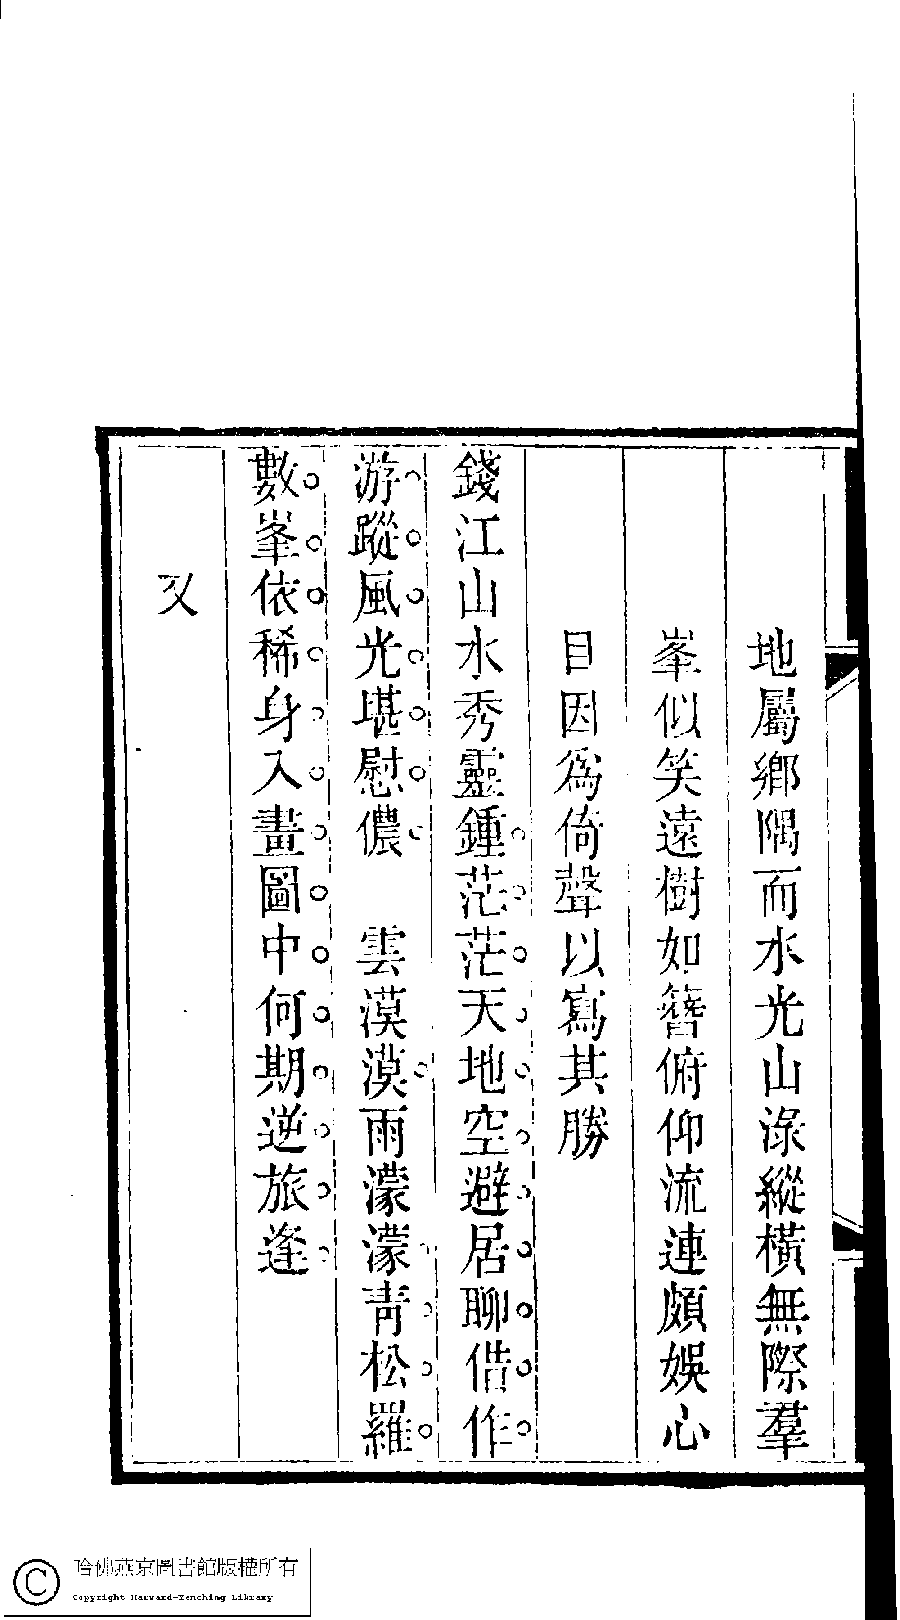 地屬鄉隅而水光山淥縱橫無際羣
峯似笑遠樹如簪俯仰流連頗娛心
目因爲倚聲以寫其勝
錢江山水秀靈鍾茫茫天地空避居聊借作
游蹤風光堪慰儂　雲漠漠雨濛濛靑松羅
數峯依稀身入畫圖中何期逆旅逢
又
哈佛燕京圖書館版權所有
Copyright Harvard-Yenching Library